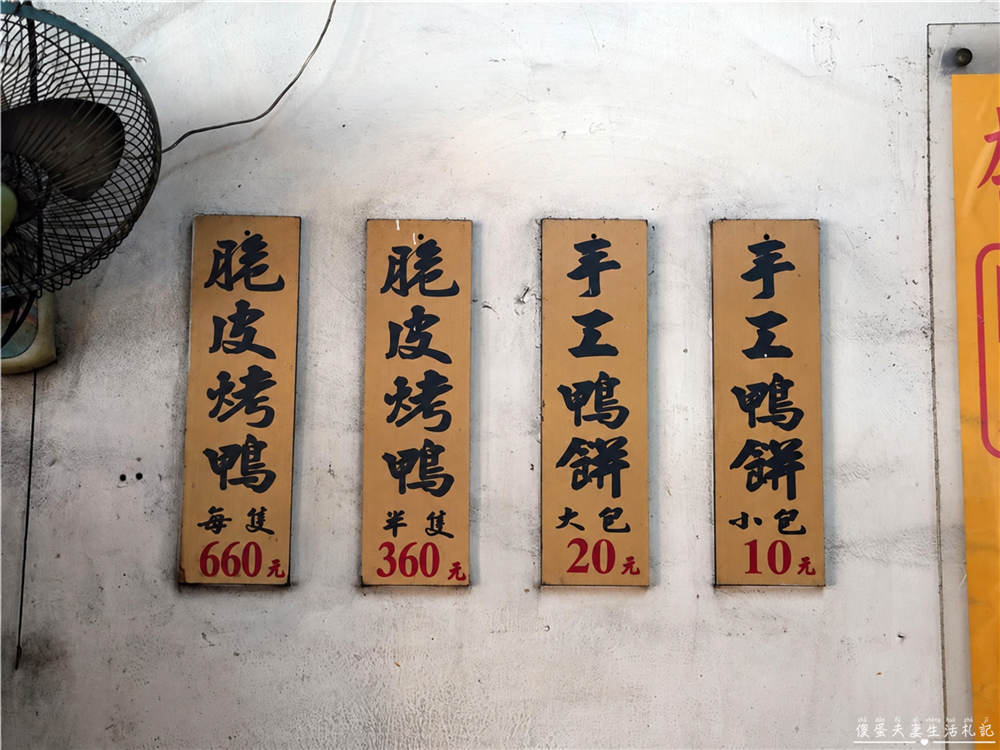 脆皮烤鴨
每隻
660元
脆皮烤鴨
半隻
360元
手工鴨餅
大包
20元
手工鴨餅
小包
10元
傻蛋夫妻生活札記